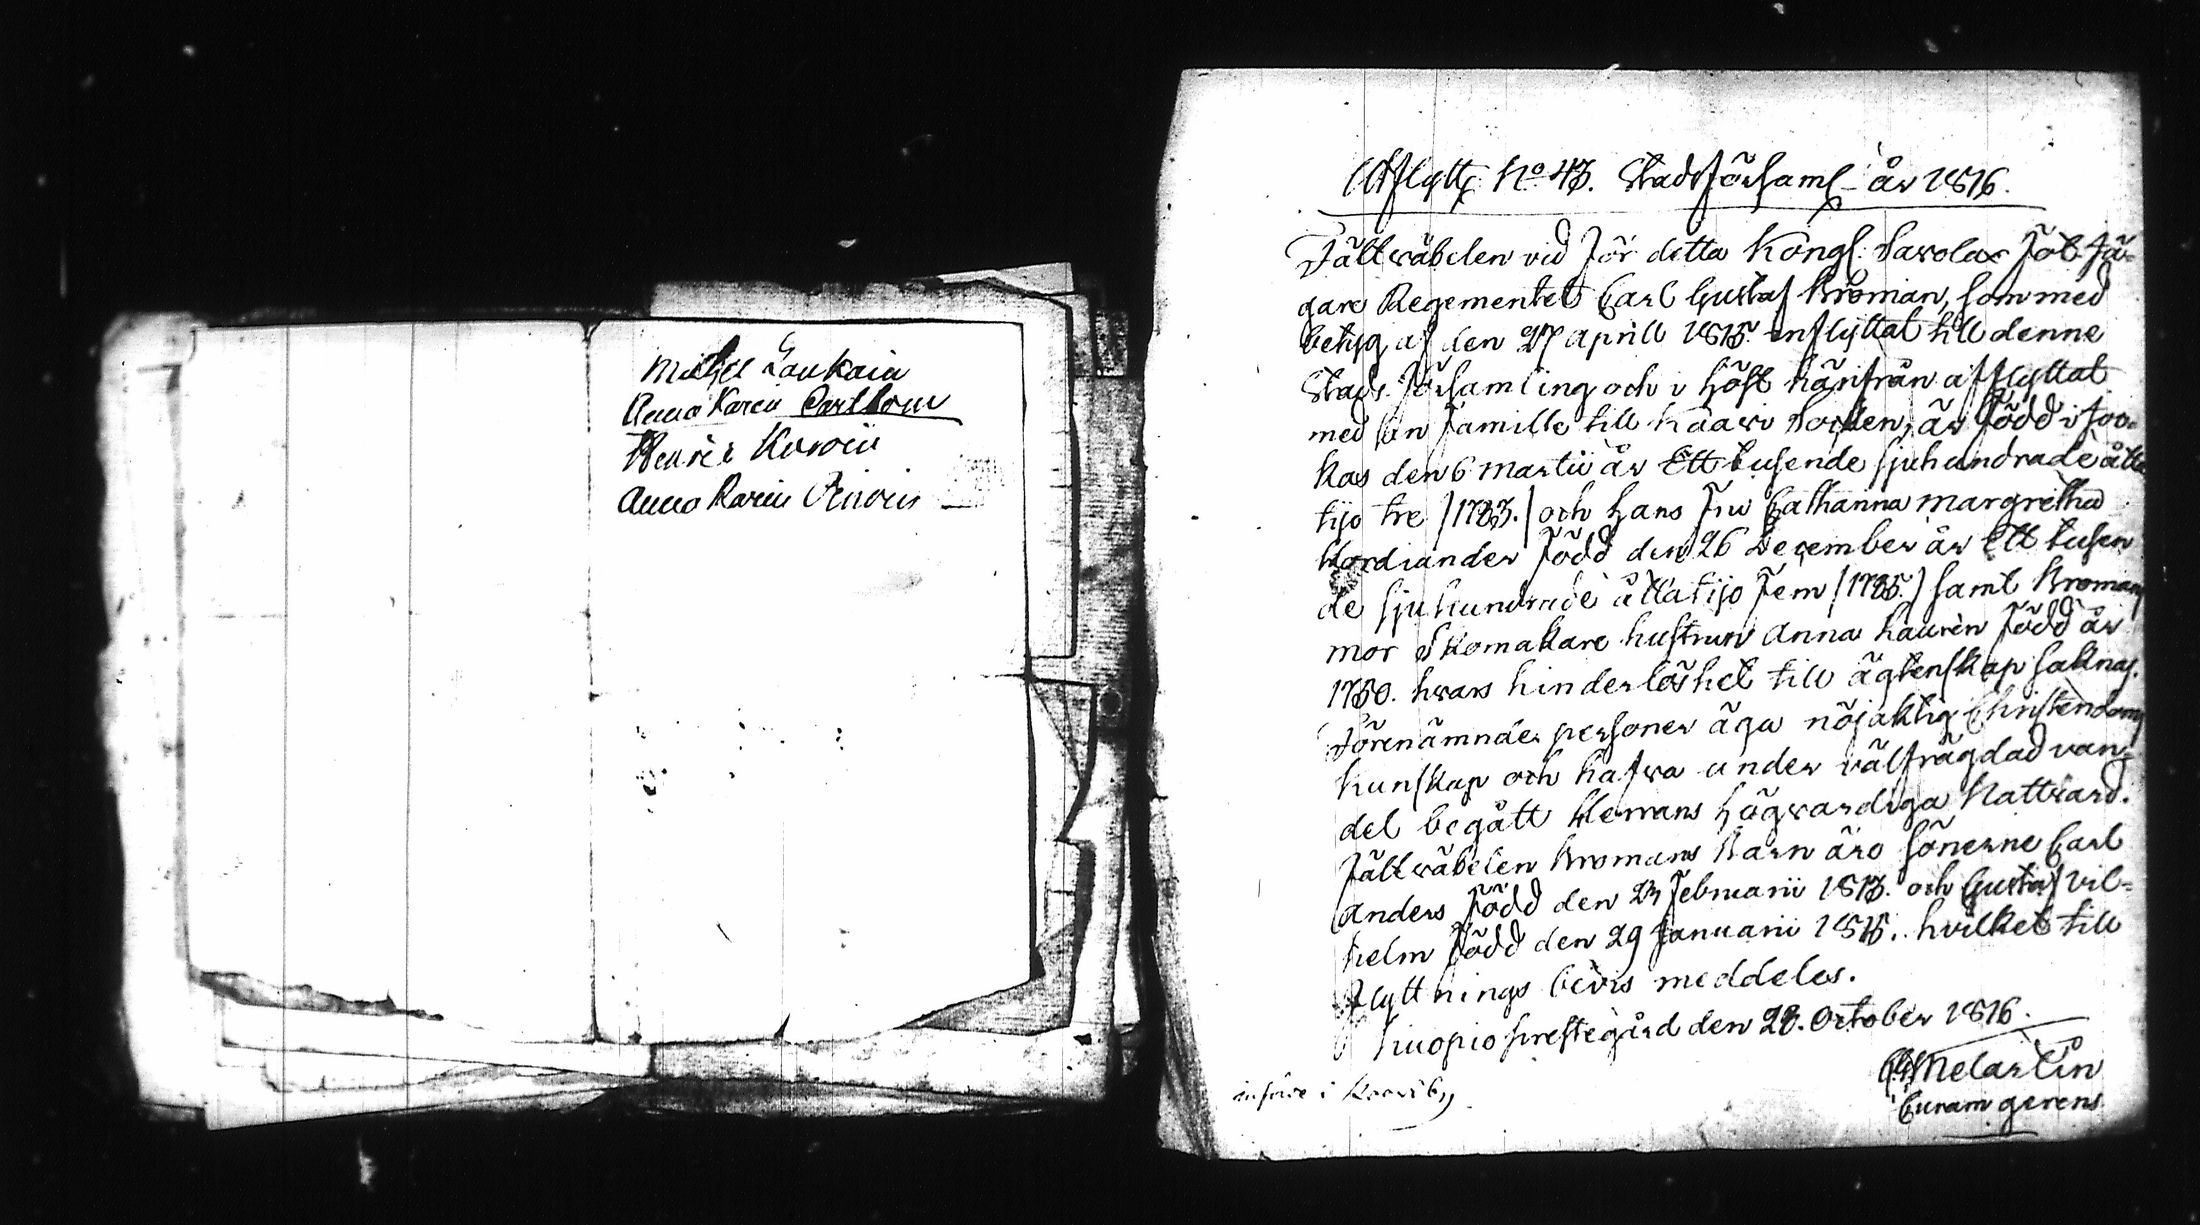 Michel Laukain
Anna Karin Carlbom
Henric Kuroin
Anna Karin
Utflyttn No 43. Stadsförsaml. år 1816.
Fältwäbelen vid för detta Kongl. Savolax fot Jä-
gare Regementet Carl Gustaf Kroman, som med
betyg af den 27 Aprill 1815 inflyttat till denne
Stads-församling och i höst härifrån afflyttat
med sin familie till Kaawi Socken, är född i Joo-
kas den 6 martii år Ett tusende sjuhundrade åtta
tijo tre /1783./ och hans fru Catharina Margretha
Nordlander född den 26 December år Ett tusen
de sjuhundrade åttatijo fem /1785./ samt Kromans
mor Skomakare hustrun Anna Laurén född år
1750. hvars hinderlöshet till ägtenskap saknas.
Förenämnde personer äga nöjaktig Christendoms
kunskap och hafva under välfrägdad van-
del begått Herrans högvärdiga Nattvard.
Fältwäbelen Kromans Barn äro sönerne Carl
Anders född den 23 februarii 1813. och Gustaf Vil-
helm född den 29 Januarii 1815. hvilket till
flyttnings bevis meddeles.
Kuopio prestegård den 28. October 1816.
Melartin
Curam gerens
införde i Kaavi by